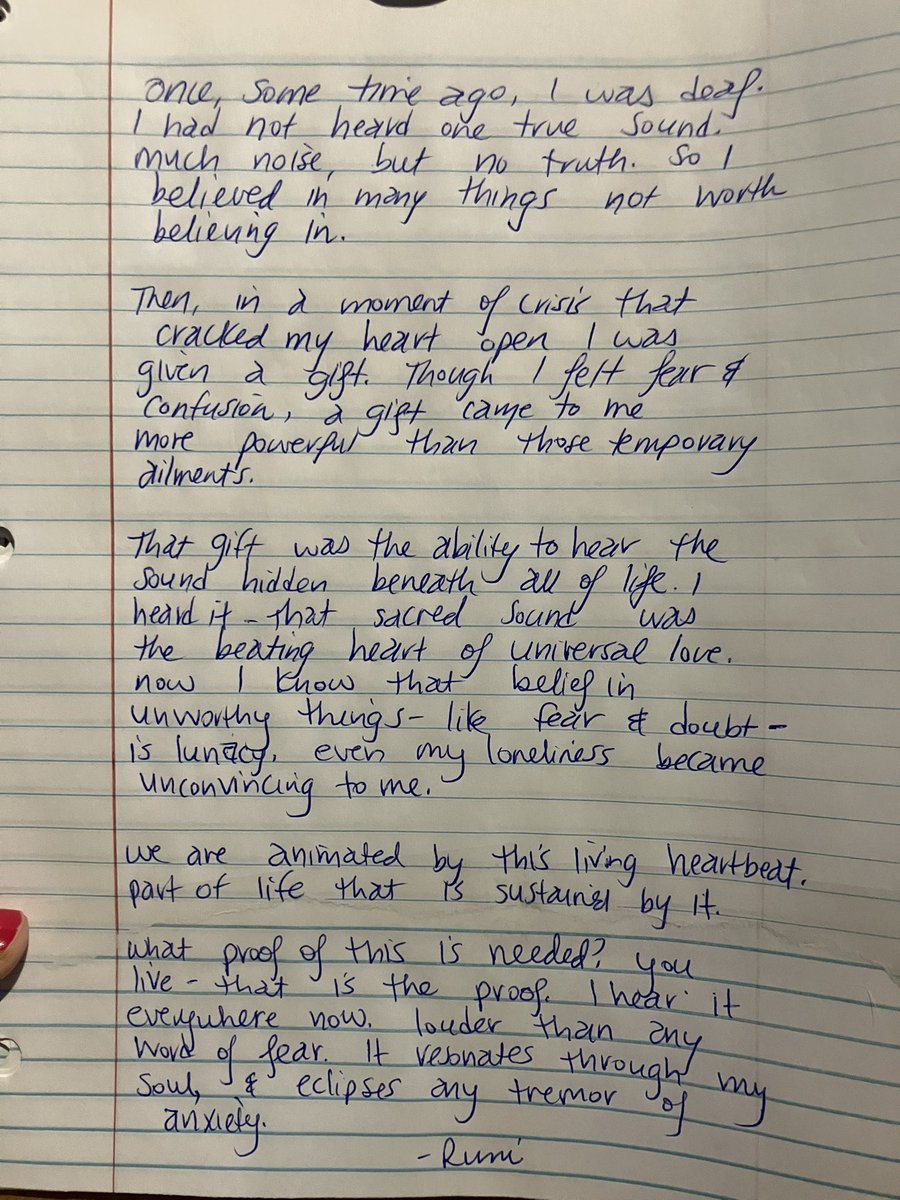 once, some time ago, I was deaf.
I had not heard one true sound.
much noise, but no truth. So I
believed in many things not worth
believing in.
Then, in a moment of crisis that
cracked my heart open I was
given a gift. Though I felt fear &
confusion, a gift came to me
more powerful than those temporary
ailments.
That gift was the ability to hear the
sound hidden beneath all of life. I
heard it - that sacred sound was
the beating heart of universal love.
now I know that belief in
unworthy things - like fear & doubt -
is lunacy. even my loneliness became
unconvincing to me.
we are animated by this living heartbeat.
part of life that is sustained by it.
what proof of this is needed? you
live - that is the proof. I hear it
everywhere now. louder than any
word of fear. It resonates through my
soul, & eclipses any tremor of
anxiety.
- Rumi